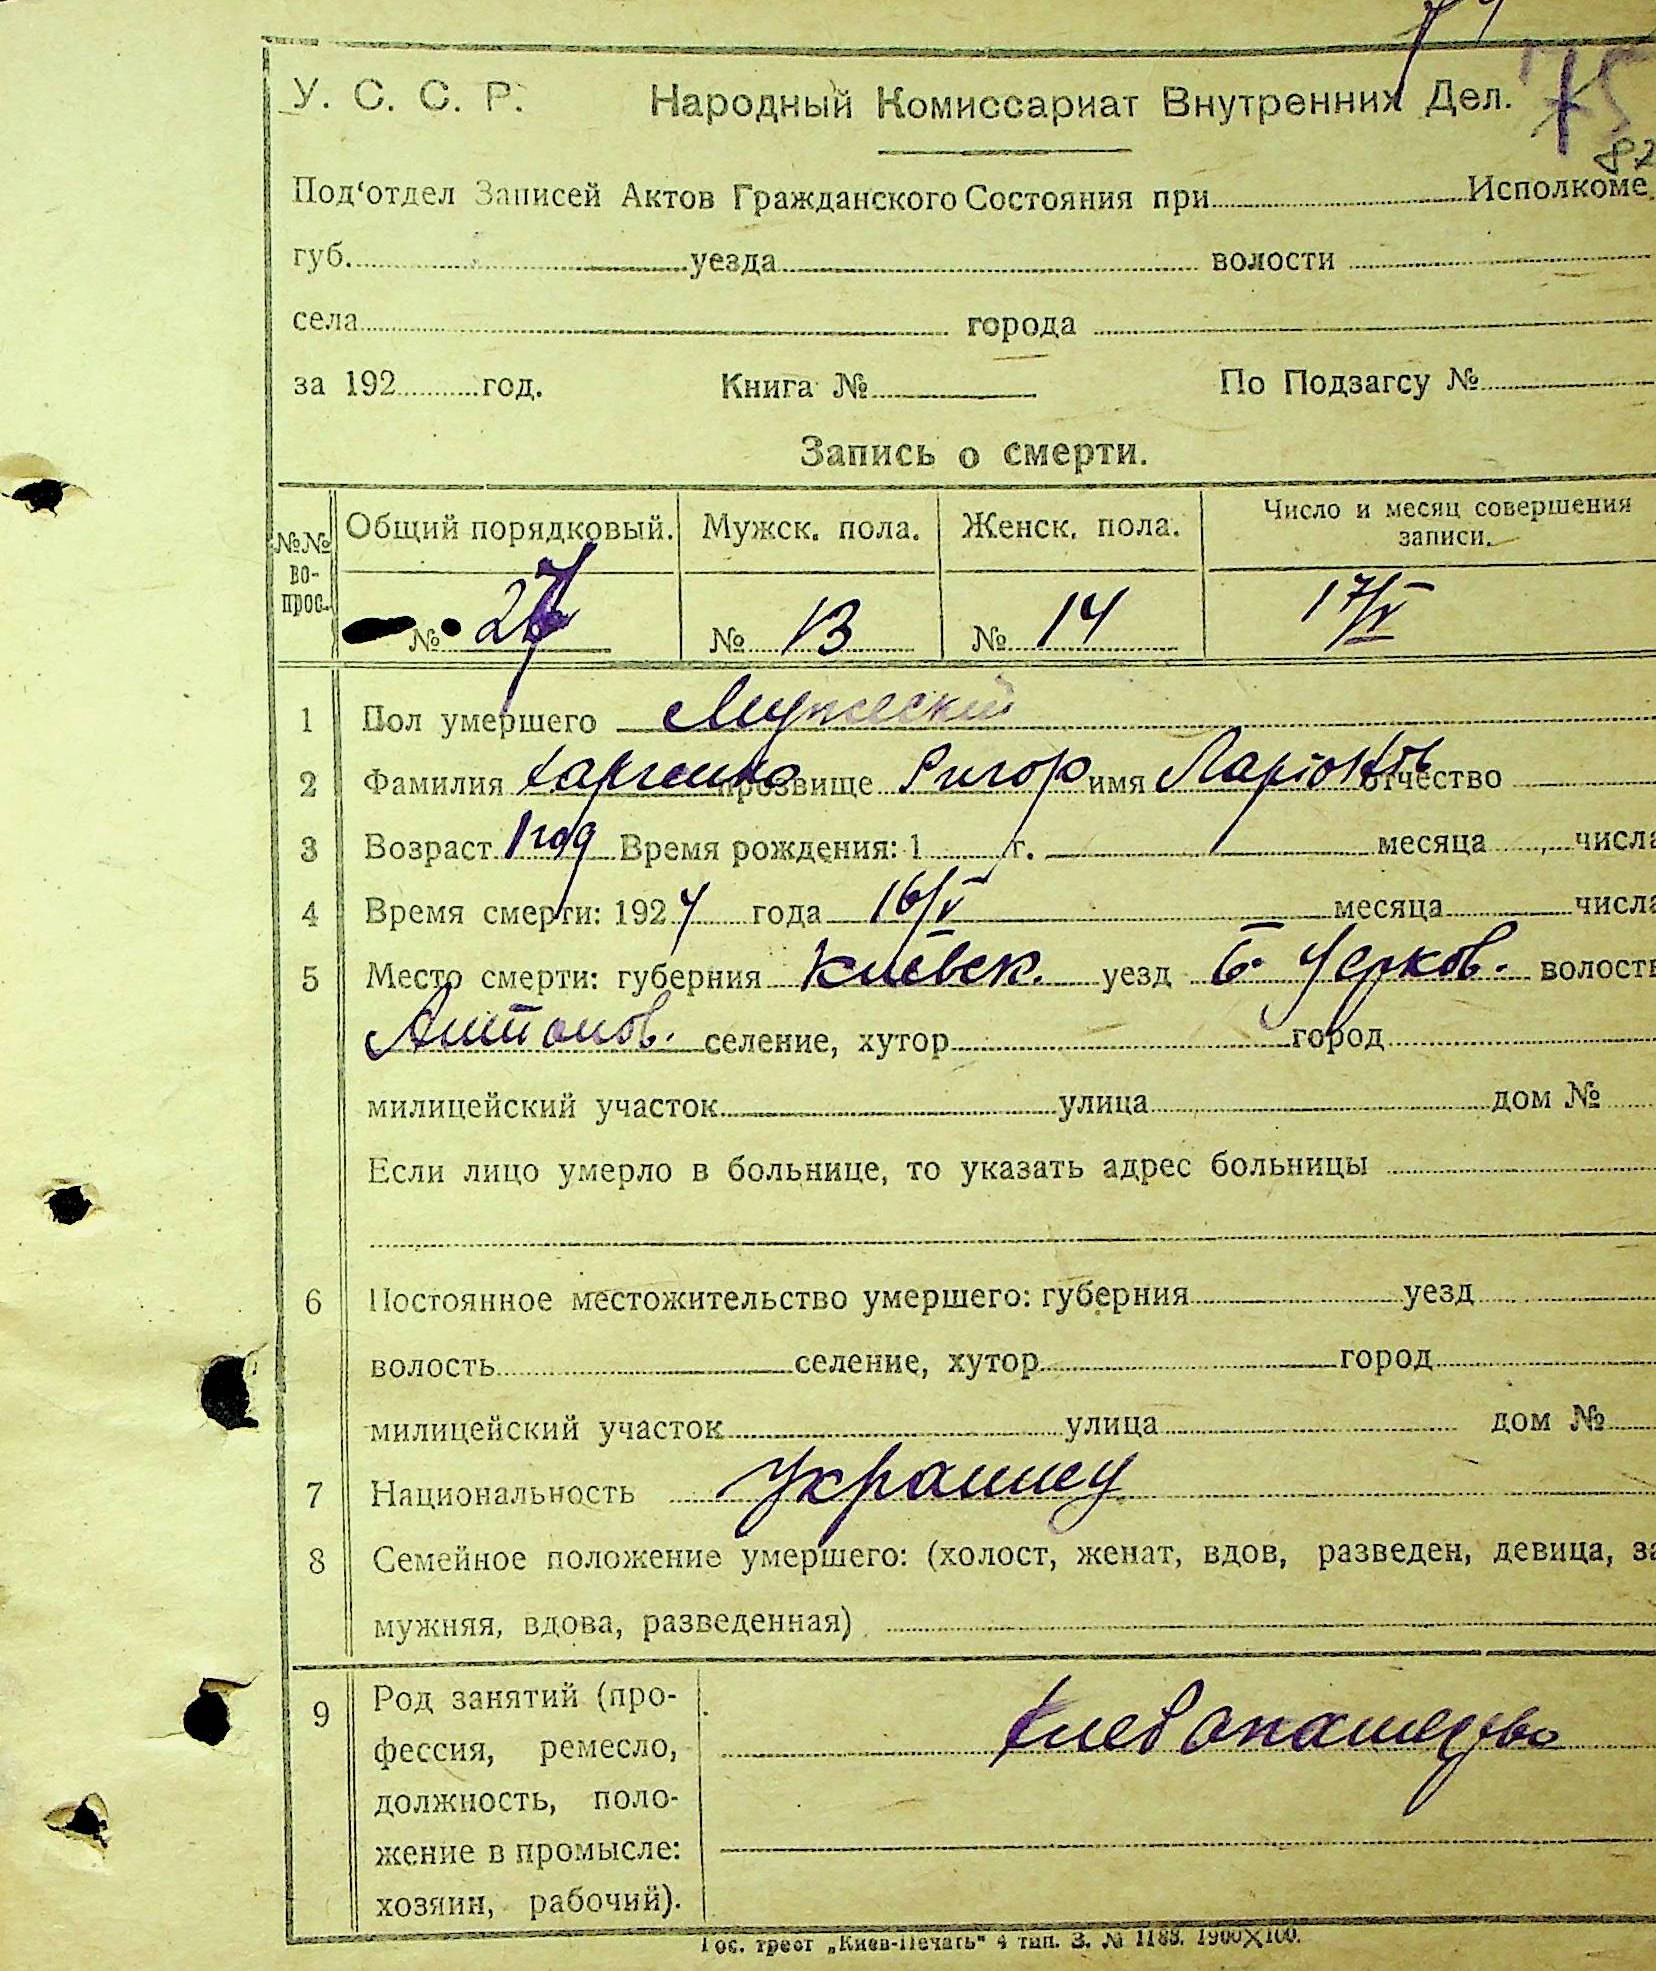 75
87
У. С. С. Р. Народный Комиссариат Внутренних Дел.
Под‘отдел Записей Актов Гражданского Состояния при Исполкоме.
губ. уезда волости
села города
за 192 год. Книга № По Подзагсу №
Запись о смерти.
№№ вопрос. Общий порядковый. Мужск. пола. Женск. пола. Число и месяц совершения записи.
№ 27 № 13 № 14 17/V
1 Пол умершего Мужеский
2 Фамилия прозвище Ригор имя Ларіон отчество
3 Возраст 1 год Время рождения: 1 г. месяца числа
4 Время смерти: 1924 года 16/V месяца числа
5 Место смерти: губерния Киевск. уезд Б. Церков. волость
Антонов. селение, хутор город
милицейский участок улица дом №
Если лицо умерло в больнице, то указать адрес больницы
6 Постоянное местожительство умершего: губерния уезд
волость селение, хутор город
милицейский участок улица дом №
7 Национальность Украинец
8 Семейное положение умершего: (холост, женат, вдов, разведен, девица, за
мужняя, вдова, разведенная)
9 Род занятий (про-
фессия, ремесло,
должность, поло-
жение в промысле:
хозяин, рабочий).
Гос. трест „Киев-Печать“ 4 тип. З. № 1188. 1900X100.